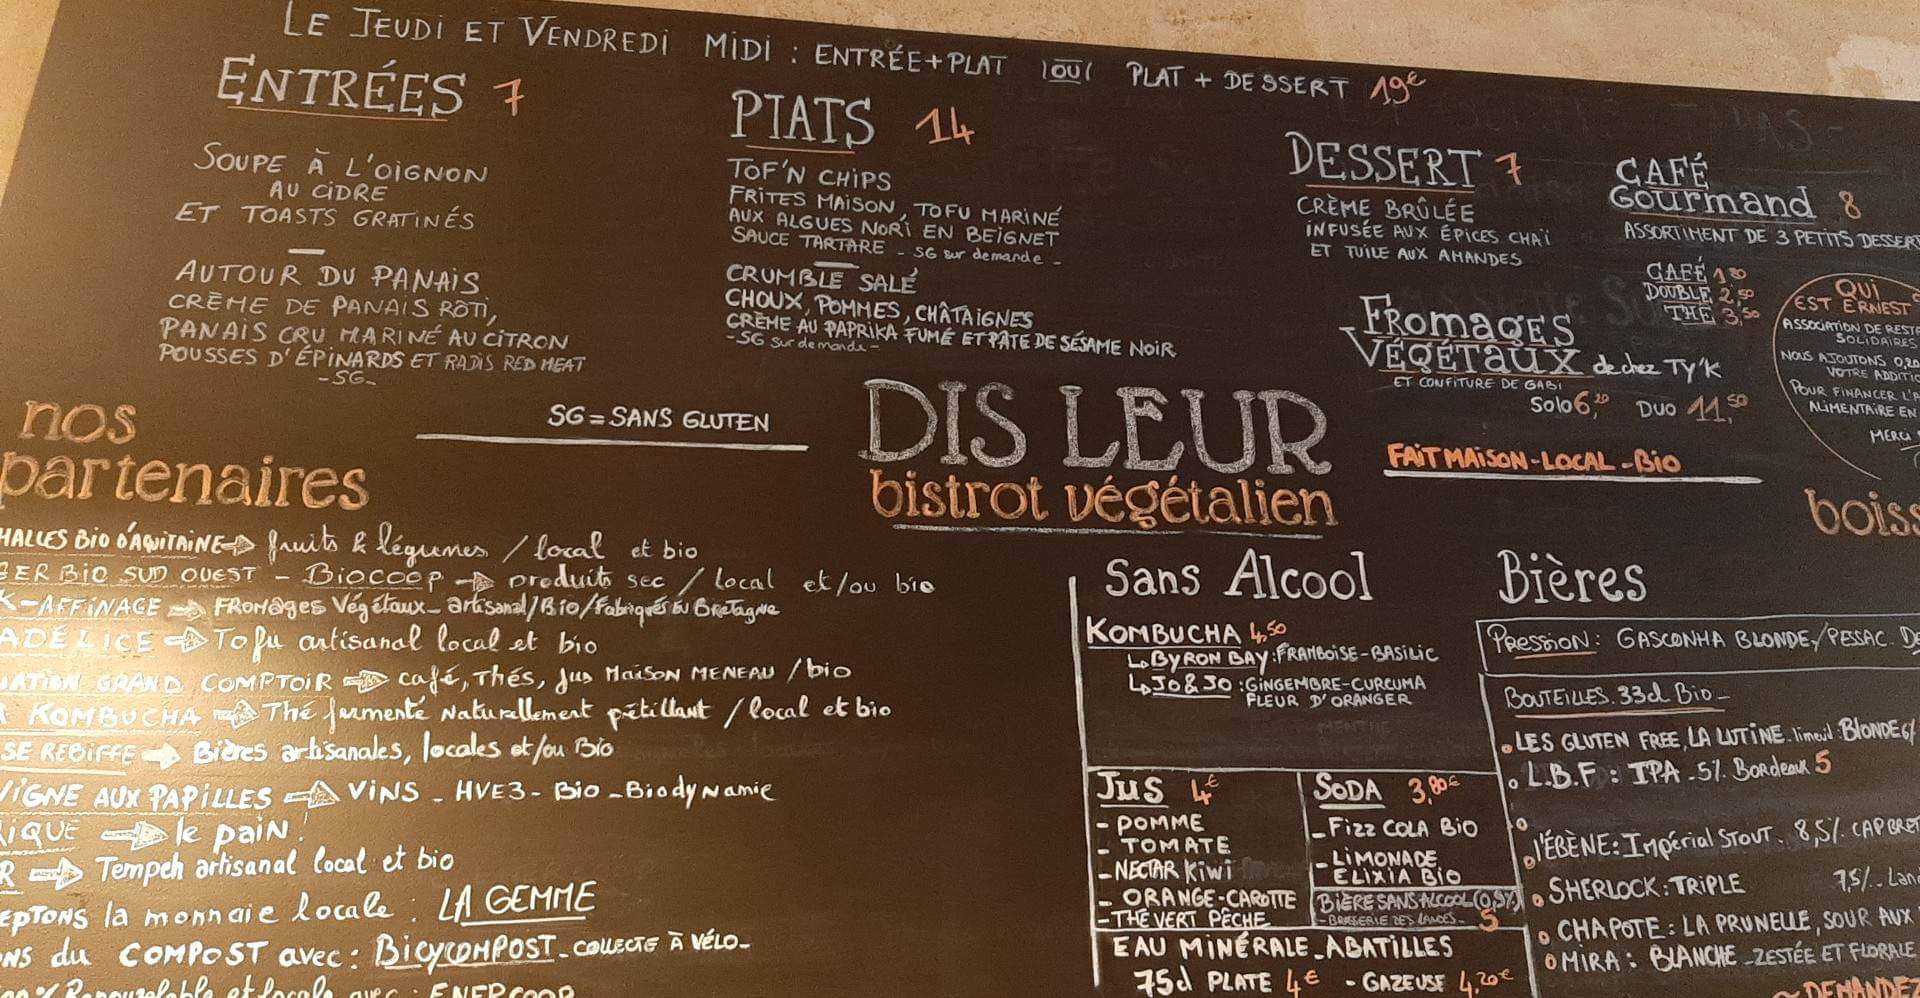 LE JEUDI ET VENDREDI MIDI : ENTRÉE+PLAT OU PLAT + DESSERT 19€
ENTRÉES 7
SOUPE À L'OIGNON
AU CIDRE
ET TOASTS GRATINÉS
AUTOUR DU PANAIS
CRÈME DE PANAIS RÔTI,
PANAIS CRU MARINÉ AU CITRON
POUSSES D'ÉPINARDS ET RADIS RED MEAT
-SG-
PLATS 14
TOF'N CHIPS
FRITES MAISON, TOFU MARINÉ
AUX ALGUES NORI EN BEIGNET
SAUCE TARTARE - SG sur demande -
CRUMBLE SALÉ
CHOUX, POMMES, CHÂTAIGNES
CRÈME AU PAPRIKA FUMÉ ET PÂTE DE SÉSAME NOIR
-SG sur demande-
DESSERT 7
CRÈME BRÛLÉE
INFUSÉE AUX ÉPICES CHAÏ
ET TUILE AUX AMANDES
CAFÉ
Gourmand 8
ASSORTIMENT DE 3 PETITS DESSER
CAFÉ 1,80
DOUBLE 2,50
THÉ 3,50
FROMAGES
VÉGÉTAUX de chez TY'K
ET CONFITURE DE GABI
Solo 6,20 DUO 11,50
QUI
EST ERNEST
ASSOCIATION DE REST
SOLIDAIRES
NOUS AJOUTONS 0,20
VOTRE ADDITIO
POUR FINANCER L'A
ALIMENTAIRE EN
MERCI
SG = SANS GLUTEN
DIS LEUR
bistrot végétalien
FAIT MAISON - LOCAL - BIO
nos
partenaires
HALLES BIO D'AQUITAINE → fruits & légumes / local et bio
GER BIO SUD OUEST - BIOCOOP → produits sec / local et/ou bio
K-AFFINAGE → FROMAGES Végétaux - artisanal/Bio/Fabriqués EN BRETAGNE
ADÉLICE → Tofu artisanal local et bio
ATION GRAND COMPTOIR → café, Thés, Jus MAISON MENEAU / bio
KOMBUCHA → Thé fermenté Naturellement pétillant / local et bio
SE REBIFFE → Bières artisanales, locales et/ou Bio
VIGNE AUX PAPILLES → VINS - HVE3 - Bio - Biodynamie
IQUE → le pain !
R → Tempeh artisanal local et bio
EPTONS la monnaie locale : LA GEMME
NS du COMPOST avec : BICYCOMPOST - COLLECTE À VÉLO -
00% Renouvelable et locale avec : ENERCOOP
boiss
Sans Alcool
KOMBUCHA 4,50
↳ BYRON BAY : FRAMBOISE - BASILIC
↳ JO & JO : GINGEMBRE - CURCUMA
FLEUR D'ORANGER
MENTHE
JUS 4€
- POMME
- TOMATE
- NECTAR Kiwi
- ORANGE-CAROTTE
- THÉ VERT PÊCHE
SODA 3,80€
- Fizz COLA BIO
- LIMONADE
ELIXIA BIO
BIÈRE SANS ALCOOL (0,5%)
- BRASSERIE DES LANDES - 5
EAU MINÉRALE - ABATILLES
75cl PLATE 4€ - GAZEUSE 4,20€
Bières
Pression : GASCONHA BLONDE / PESSAC
BOUTEILLES 33cl BIO -
LES GLUTEN FREE, LA LUTINE limeuil : BLONDE 6%
L.B.F : IPA - 5% Bordeaux 5
l'ÉBÈNE : Impérial STOUT 8,5% CAPBRET
SHERLOCK : TRIPLE 7,5% - Lan
CHAPOTE : LA PRUNELLE, SOUR AUX
MIRA : BLANCHE - ZESTÉE ET FLORALE
DEMANDEZ